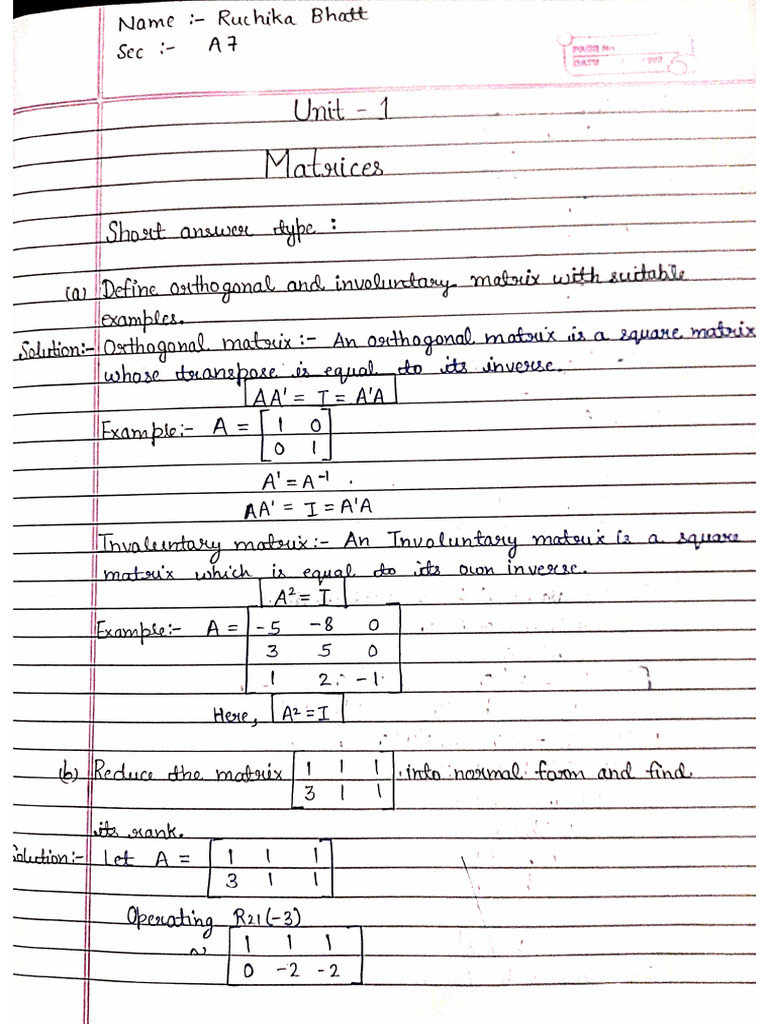 Name :- Ruchika Bhatt
Sec :- A7
PAGE No.
DATE
Unit - 1
Matrices
Short answer type :
(a) Define orthogonal and involuntary matrix with suitable
examples.
Solution:- Orthogonal matrix:- An orthogonal matrix is a square matrix
whose transpose is equal to its inverse.
AA' = I = A'A
Example:- A = [1 0
0 1]
A' = A⁻¹ .
AA' = I = A'A
Involuntary matrix:- An Involuntary matrix is a square
matrix which is equal to its own inverse.
A² = I
Example:- A = [-5 -8 0
3 5 0
1 2 -1]
Here, A² = I
(b) Reduce the matrix [1 1 1 into normal form and find
3 1 1]
its rank.
Solution:- Let A = [1 1 1
3 1 1]
Operating R21(-3)
~ [1 1 1
0 -2 -2]